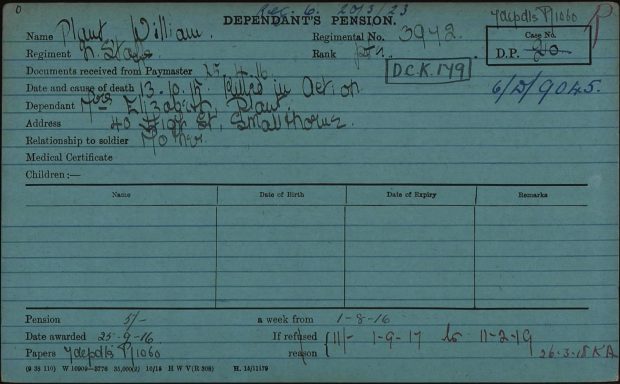 Rec. 6. 20/3/23
DEPENDANT'S PENSION.
7depdls P/1060
Name Plant William.
Regimental No. 3942
Case No.
D.P. 20
Regiment N. Staffs
Rank Pte.
Documents received from Paymaster 25.4.16
D.C.K. 179
Date and cause of death 13.10.15 Killed in Action
6/D/9045.
Dependant Mrs Elizabeth Plant.
Address 40 High St, Smallthorne
Relationship to soldier Mother.
Medical Certificate
Children:—
Name Date of Birth Date of Expiry Remarks
Pension 5/- a week from 1-8-16
Date awarded 25-9-16. If refused 11/- 1-9-17 to 11-2-19
Papers 7depdls P/1060 reason 26-3-18 KA
(9 38 110) W 10909—3776 35,000(2) 10/18 H W V(R 308) H. 18/11179